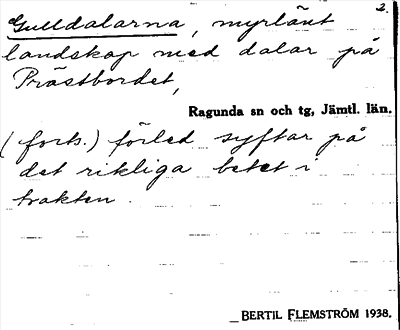 2.
Gulldalarna, myrlänt
landskap med dalar på
Prästbordet,
Ragunda sn och tg, Jämtl. län.
(forts.) förled syftar på
det rikliga betet i
trakten.
BERTIL FLEMSTRÖM 1938.